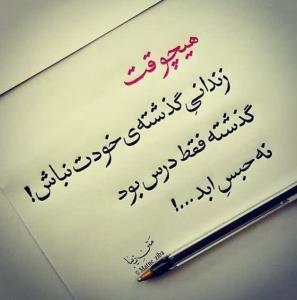 هیچوقت
زندانیِ گذشته‌ی خودت نباش!
گذشته فقط درس بود
نه حبسِ ابد...!
متن زیبا
@Matne_ziba